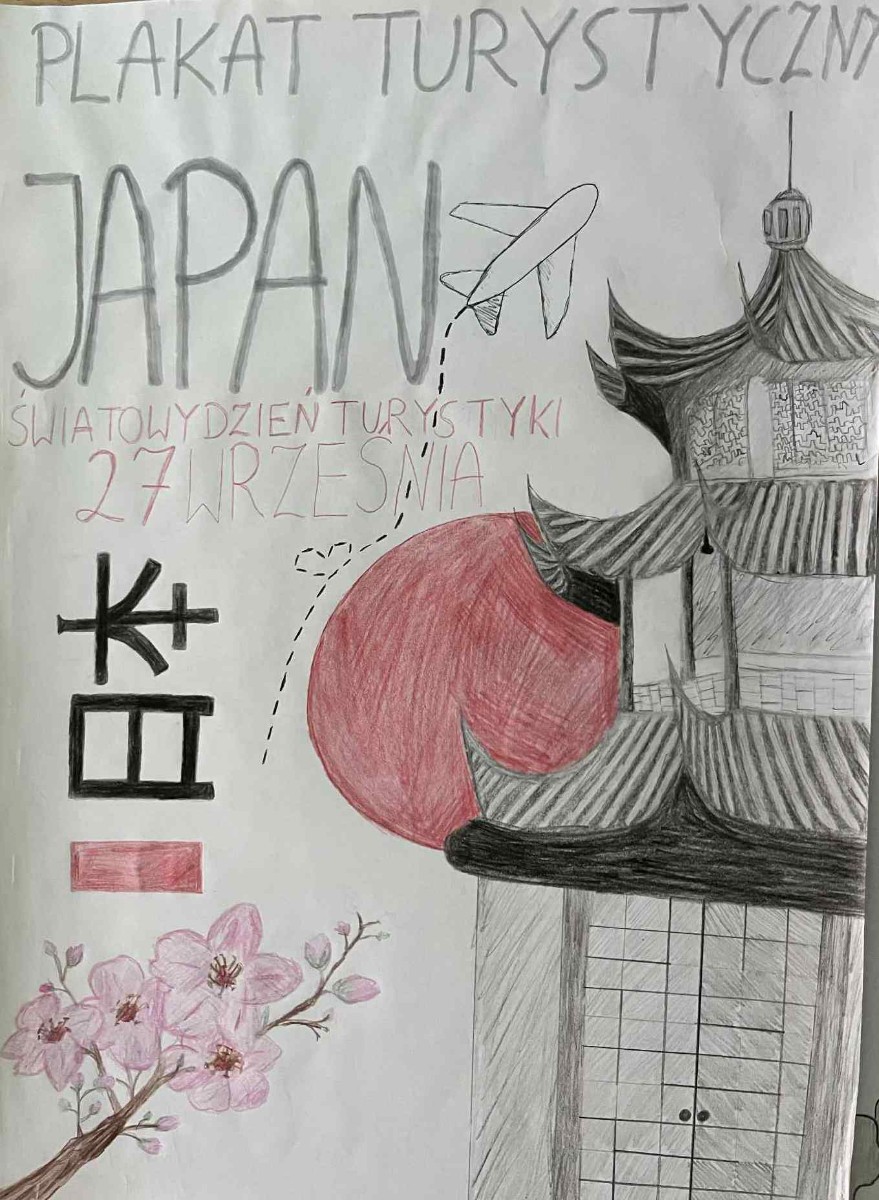 PLAKAT TURYSTYCZNY
JAPAN
ŚWIATOWY DZIEŃ TURYSTYKI
27 WRZEŚNIA
日本